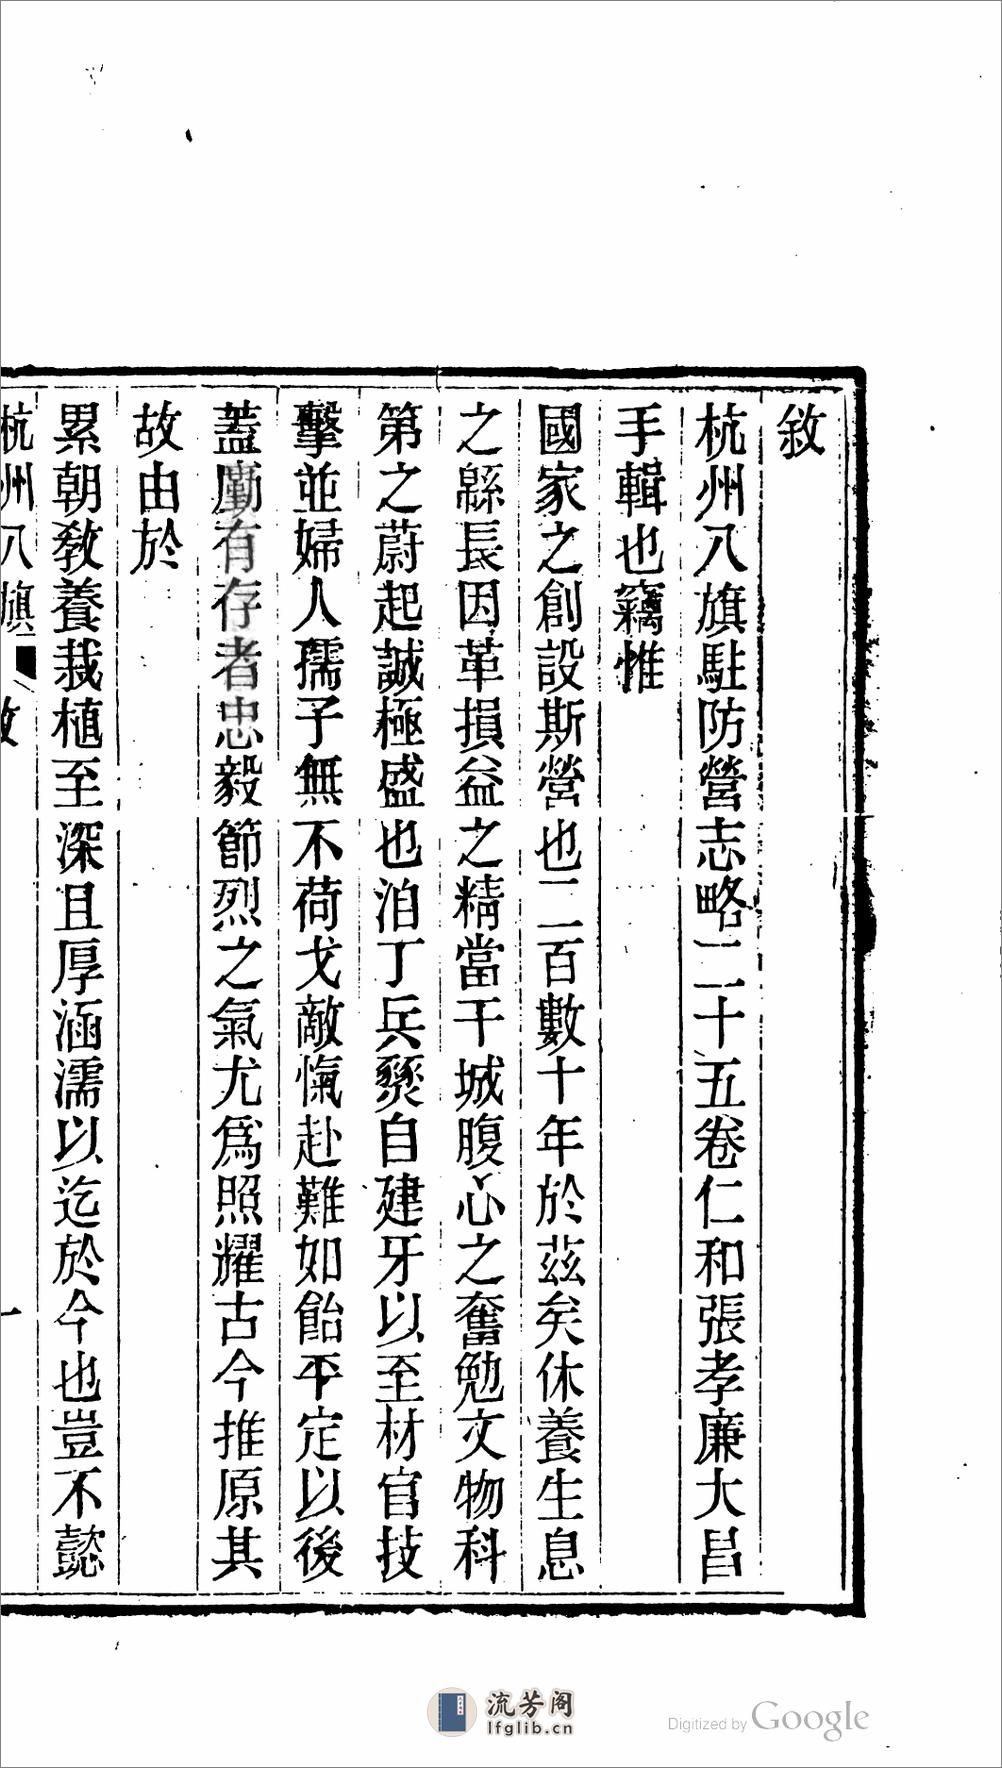 敘
杭州八旗駐防營志略二十五卷仁和張孝廉大昌
手輯也竊惟
國家之創設斯營也二百數十年於茲矣休養生息
之緜長因革損益之精當干城腹心之奮勉文物科
第之蔚起誠極盛也洎丁兵燹自建牙以至材官技
擊並婦人孺子無不荷戈敵愾赴難如飴平定以後
蓋勵有存者忠毅節烈之氣尤爲照耀古今推原其
故由於
累朝敎養栽植至深且厚涵濡以迄於今也豈不懿
杭州八旗 敘 一
流芳阁
lfglib.cn
Digitized by Google